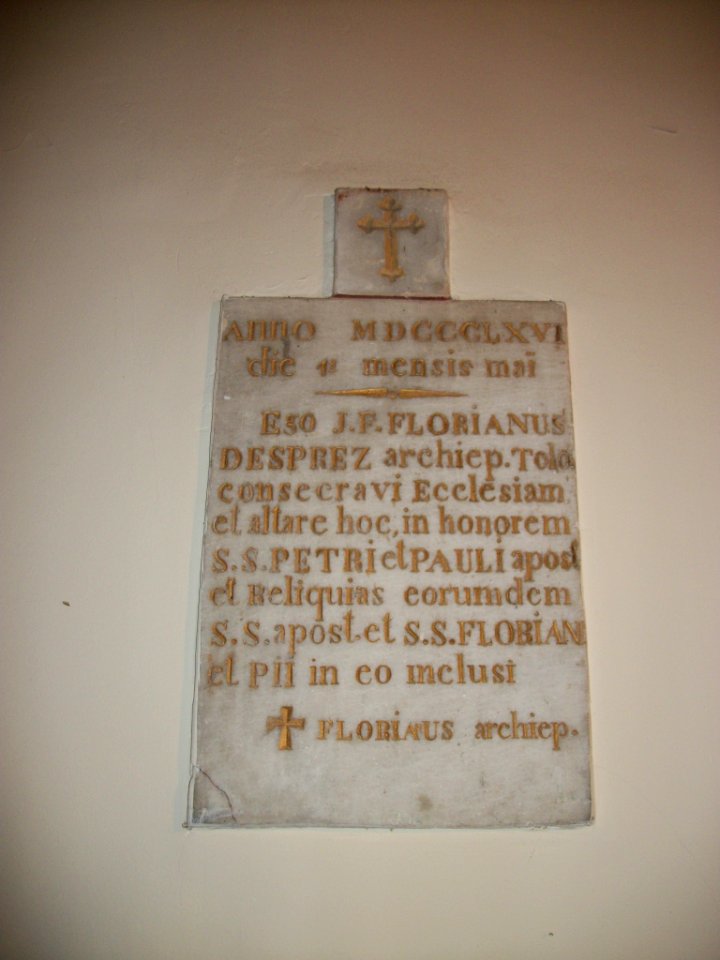 ANNO MDCCCLXVI
die mensis maï
EGO J.F. FLORIANUS
DESPREZ archiep. Tolo
consecravi Ecclesiam
et altare hoc, in honorem
S.S. PETRI et PAULI apost
et Reliquias eorumdem
S.S. apost. et S.S. FLORIANI
et PII in eo inclusi
✝ FLORIANUS archiep.